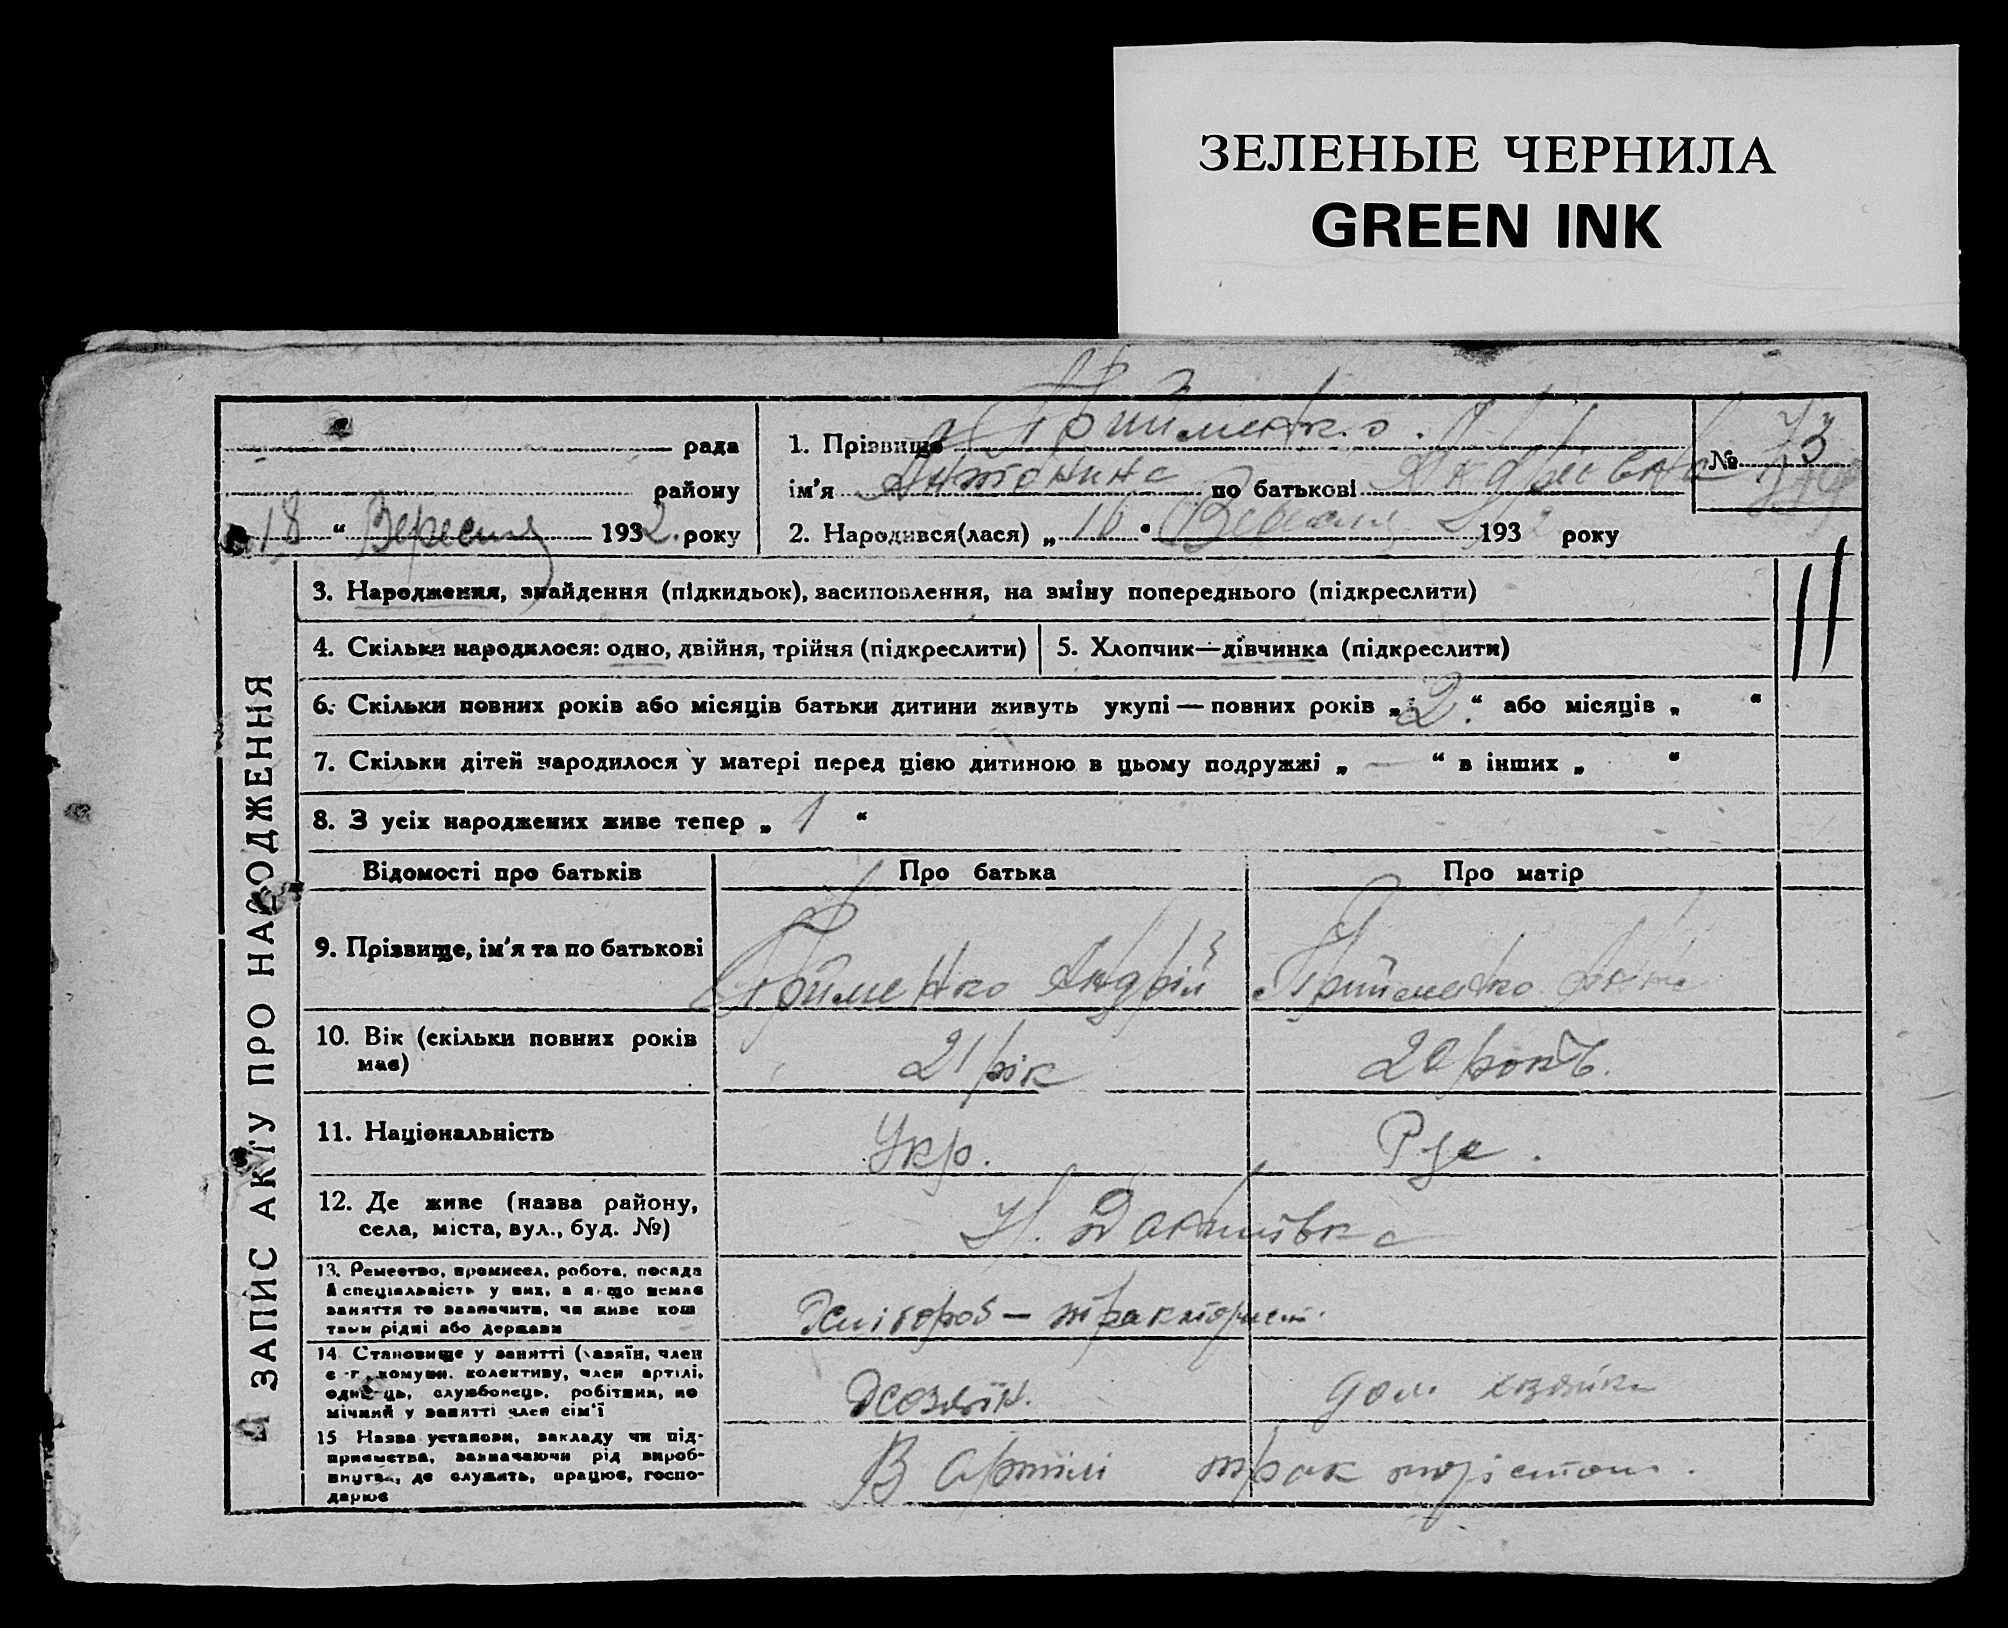 ЗЕЛЕНЫЕ ЧЕРНИЛА
GREEN INK
рада
району
18 “ Вересня 1932. року
1. Прізвище Прийменко.
ім'я Антонина по батькові Андріівна
№ 73
2. Народився(лася) „ 16 “ Вересня 1932 року
А ЗАПИС АКТУ ПРО НАРОДЖЕННЯ
3. Народження, знайдення (підкидьок), засиновлення, на зміну попереднього (підкреслити)
4. Скільки народилося: одно, двійня, трійня (підкреслити)
5. Хлопчик—дівчинка (підкреслити)
6. Скільки повних років або місяців батьки дитини живуть укупі — повних років „ 2. “ або місяців „ “
7. Скільки дітей народилося у матері перед цією дитиною в цьому подружжі „ — “ в інших „ “
8. З усіх народжених живе тепер „ 1 “
Відомості про батьків
Про батька
Про матір
9. Прізвище, ім'я та по батькові
Прийменко Андрій
Прийменко
10. Вік (скільки повних років має)
21 рік
20 років.
11. Національність
Укр.
Рус.
12. Де живе (назва району,
села, міста, вул., буд. №)
13. Ремество, промисел, робота, посада
й спеціяльність у них, а якщо немає
заняття то зазначити, чи живе кош
тами рідні або держави
Хлібороб — тракторист.
14 Становище у занятті (хазяїн, член
с-г. комуни. колективу, член артілі,
одинець, службовець, робітник, по
мічний у занятті член сім'ї
Хозяїн.
дом. хазяйка
15 Назва установи, закладу чи під-
приємства, зазначаючи рід вироб-
ництва, де служить, працює, госпо-
дарює
В артілі трактористом.